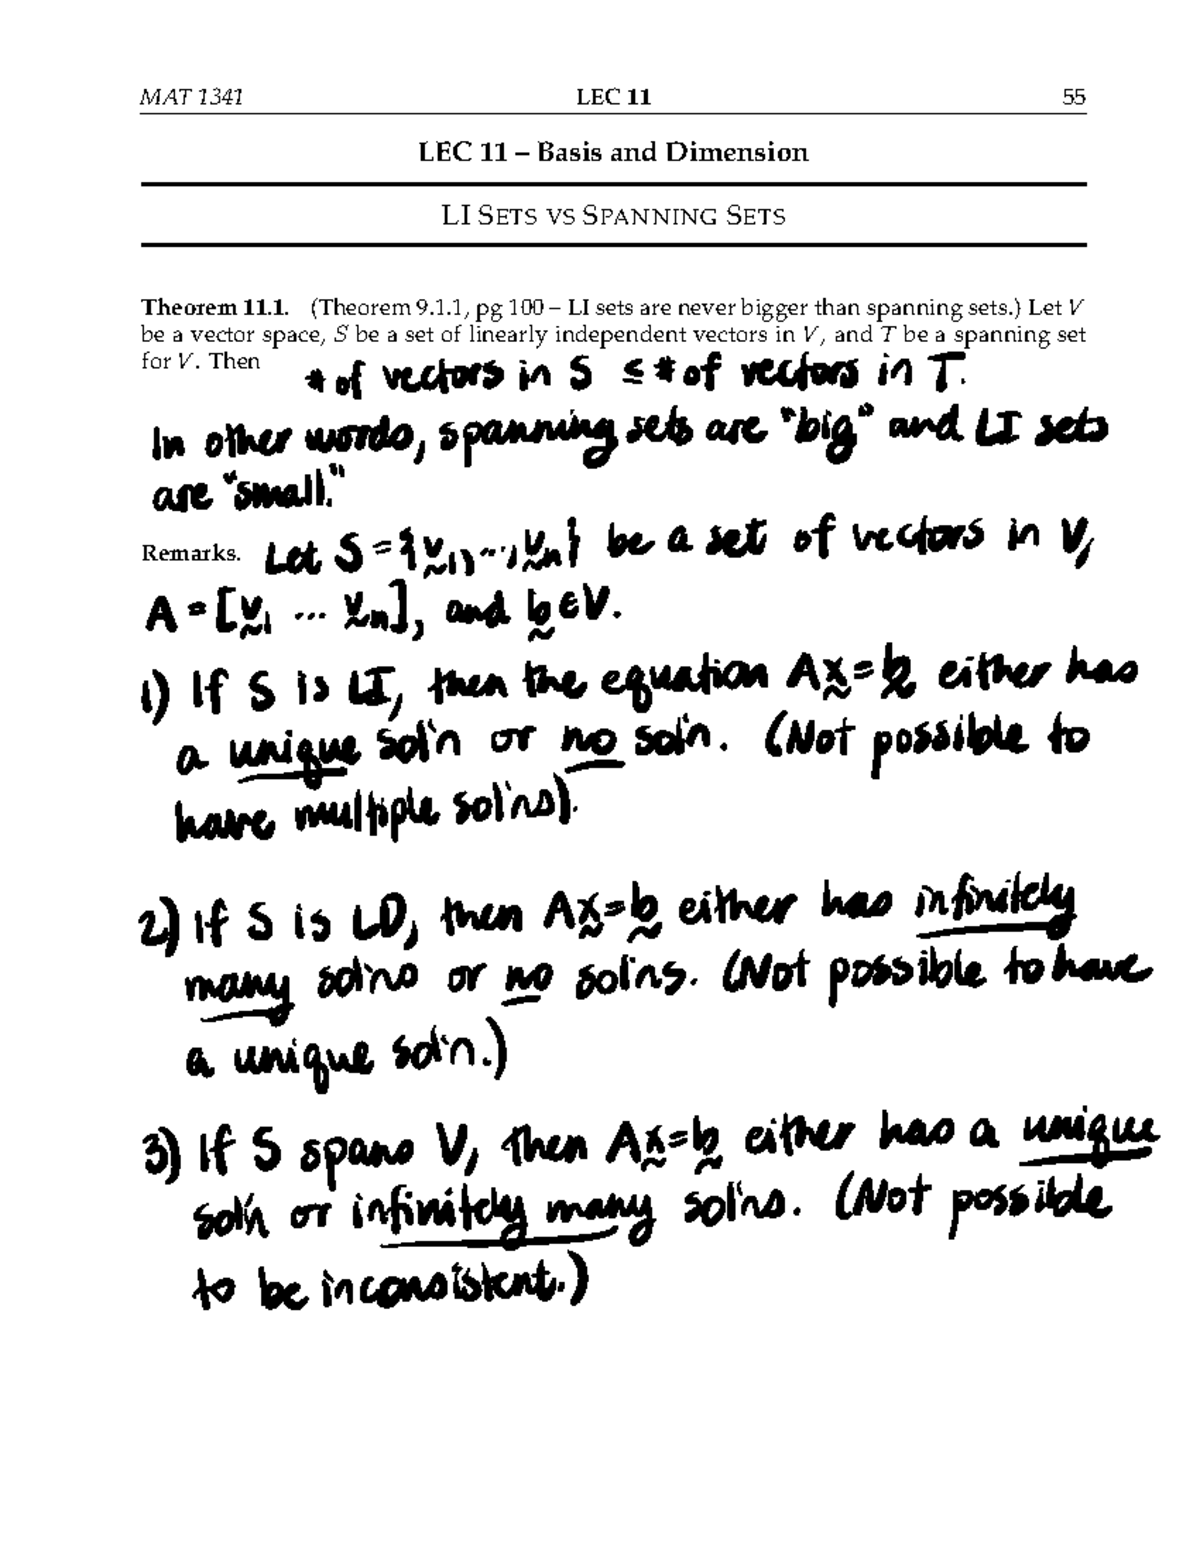 MAT 1341 LEC 11 55
LEC 11 – Basis and Dimension
LI SETS VS SPANNING SETS
Theorem 11.1. (Theorem 9.1.1, pg 100 – LI sets are never bigger than spanning sets.) Let V
be a vector space, S be a set of linearly independent vectors in V, and T be a spanning set
for V. Then # of vectors in S ≤ # of vectors in T.
In other words, spanning sets are "big" and LI sets
are "small."
Remarks. Let S = {v₁, ..., vₙ} be a set of vectors in V,
A = [v₁ ... vₙ], and b ∈ V.
1) If S is LI, then the equation Ax = b either has
a unique sol'n or no sol'n. (Not possible to
have multiple sol'ns).
2) If S is LD, then Ax = b either has infinitely
many sol'ns or no sol'ns. (Not possible to have
a unique sol'n.)
3) If S spans V, then Ax = b either has a unique
sol'n or infinitely many sol'ns. (Not possible
to be inconsistent.)